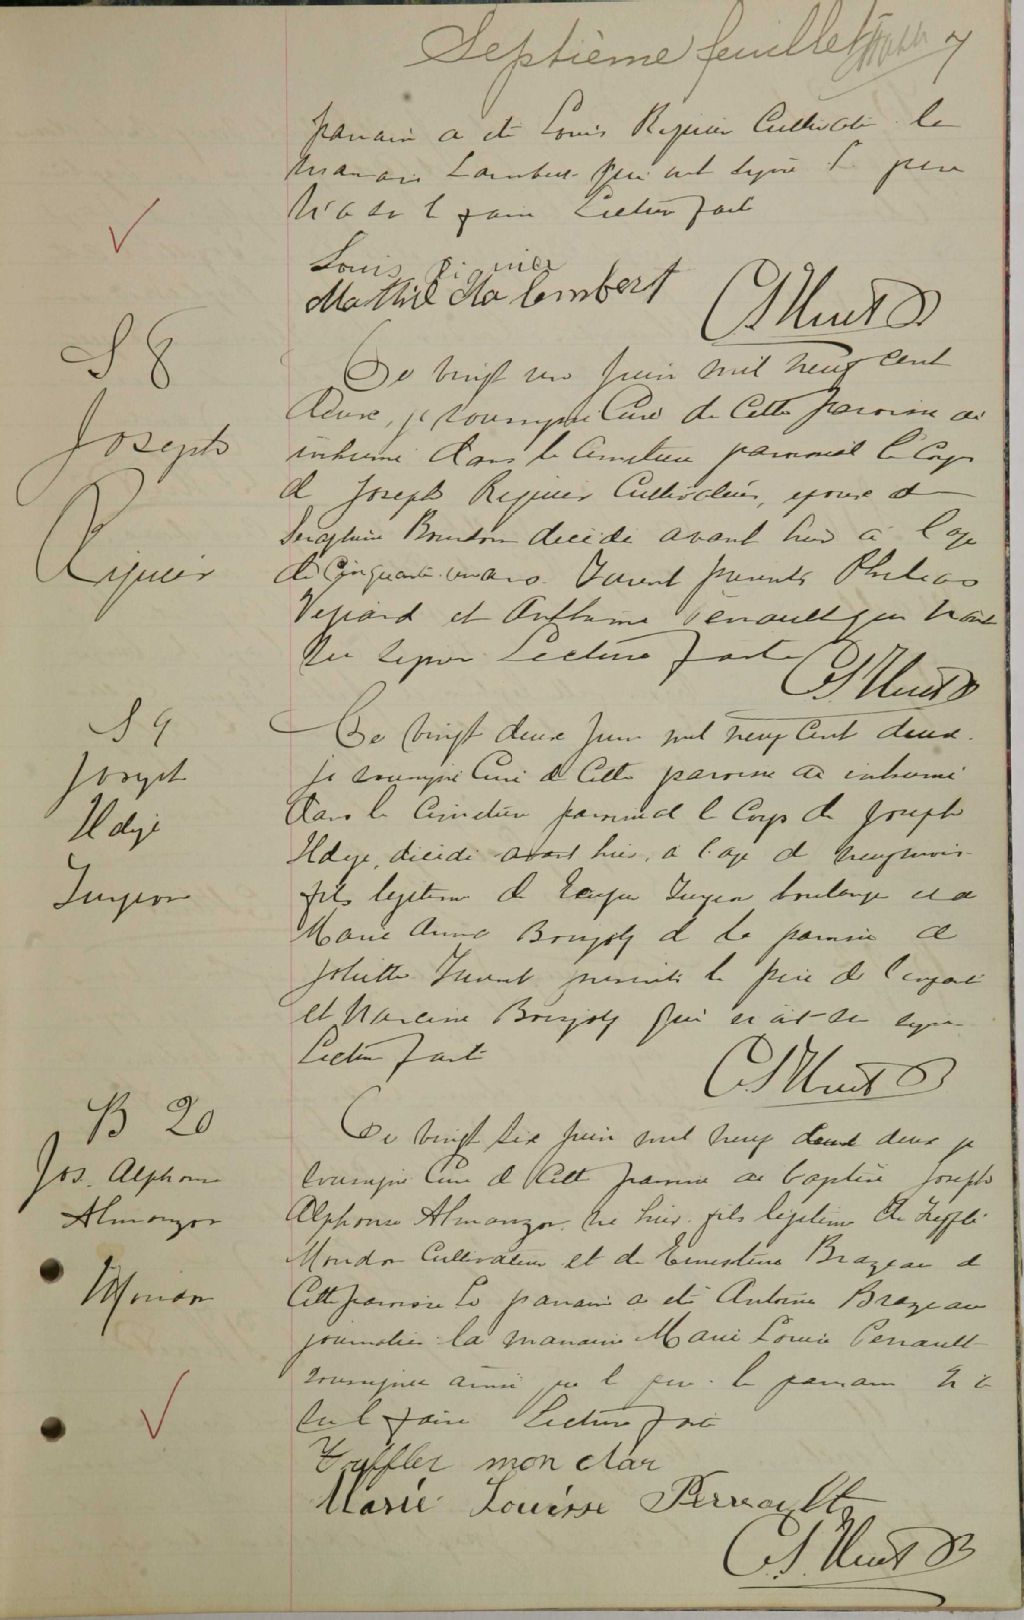 Septième feuillet 7
parrain a été Louis Riquier Cultivateur la
marraine Lambert qui ont signé le père
n'a su le faire Lecture faite
Louis Riquier
Mathilda lambert
C S Huet
S 8
Joseph
Riquier
Ce vingt un Juin mil neuf cent
deux, je soussigné Curé de Cette paroisse ai
inhumé dans le Cimetière paroissial le Corps
de Joseph Riquier Cultivateur, époux de
Séraphine Bourdon décédé avant hier à l'age
de Cinquante un ans. Furent présents Philias
et Anthime qui n'ont
su signer Lecture faite
C S Huet
S 9
Joseph
Ildege
Turgeon
Ce vingt deux Juin mil neuf Cent deux
je soussigné Curé de Cette paroisse ai inhumé
dans le Cimetière paroissial le Corps de Joseph
Ildege, décédé avant hier, a l'age de neuf mois
fils légitime de Turgeon boulanger et de
Marie Anna de la paroisse de
Joliette Furent présents le père de l'enfant
et Narcisse qui n'ont su signer
Lecture faite
C S Huet
B 20
Jos. Alphonse
Almanzor
Mondor
Ce vingt six Juin mil neuf cent deux je
soussigné Curé de Cette paroisse ai baptisé Joseph
Alphonse Almanzor né hier fils légitime de Trefflé
Mondor Cultivateur et de Ernestine Brazeau de
Cette paroisse Le parrain a été Antoine Brazeau
journalier la marraine Marie Louise Perrault
soussignée ainsi que le père. le parrain n'a
su le faire Lecture faite
Treffler mon dor
Marie Louisse Perrault
C. S. Huet